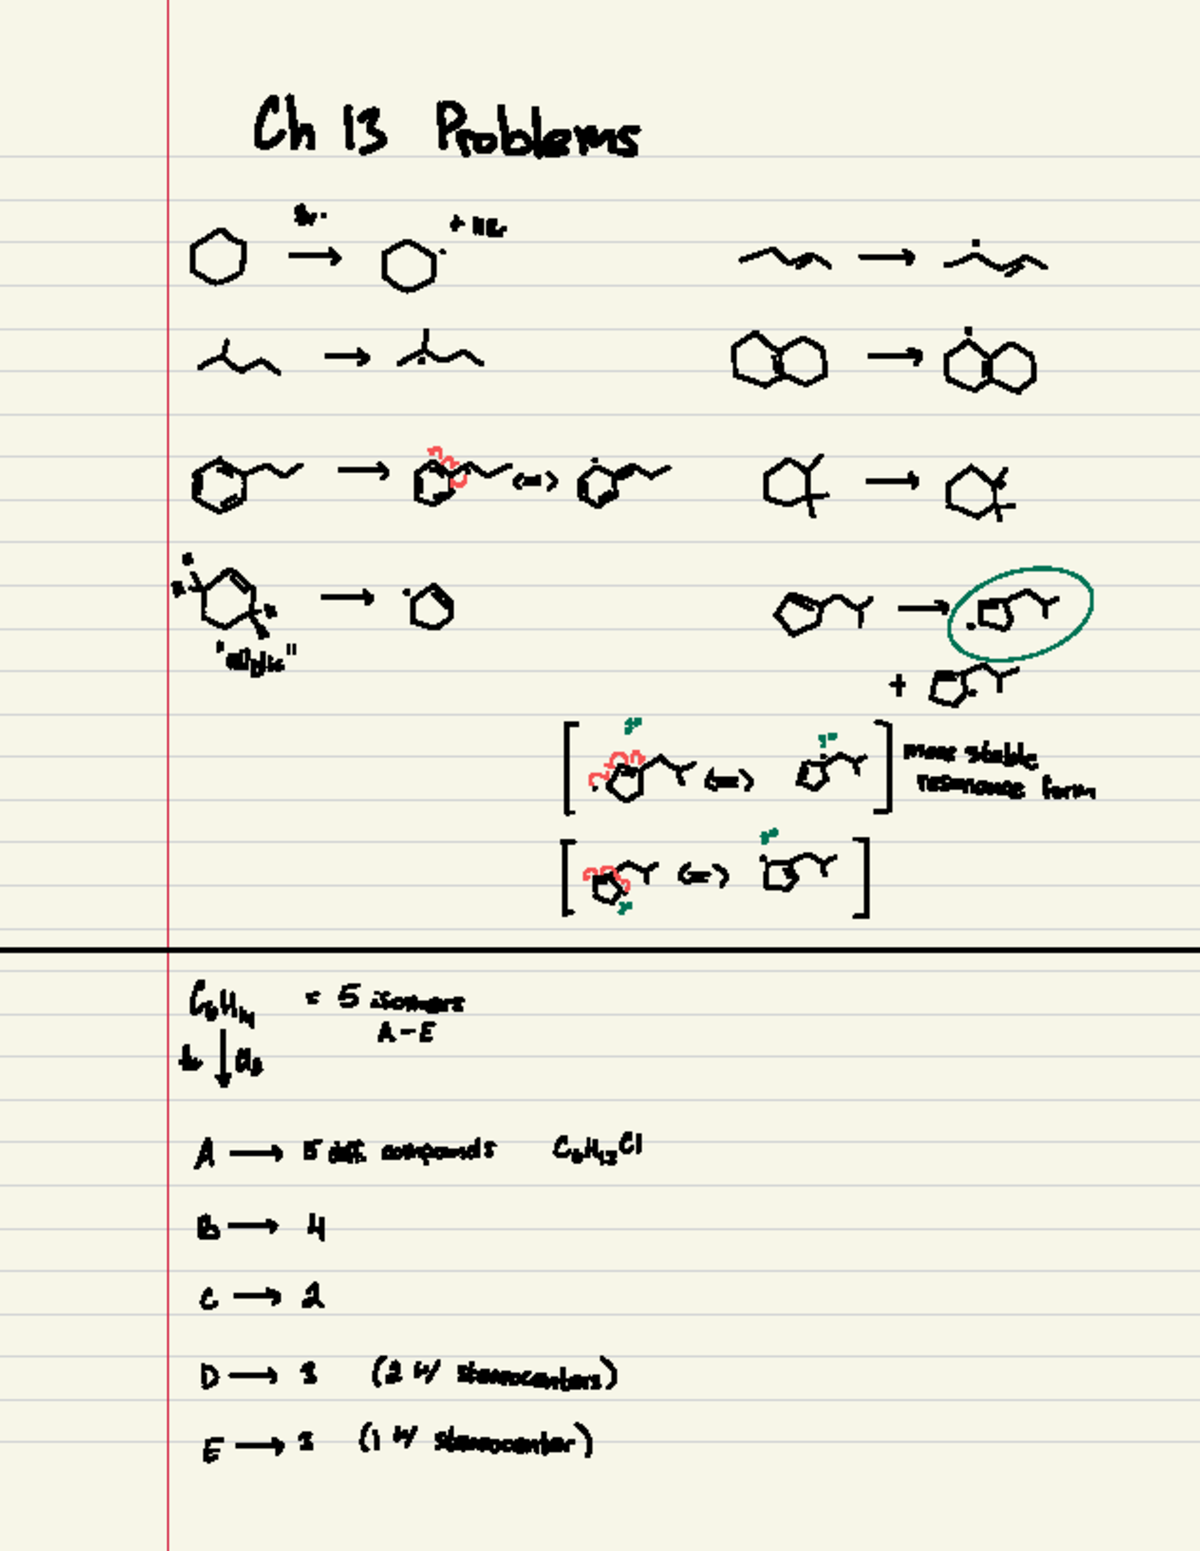 Ch 13 Problems
Br·
+ HBr
"allylic"
+
3°
3°
more stable
resonance form
2°
2°
C6H14 = 5 isomers
A-E
Cl2
A → 5 diff. compounds C6H13Cl
B → 4
C → 2
D → 3 (2 w/ stereocenters)
E → 3 (1 w/ stereocenter)